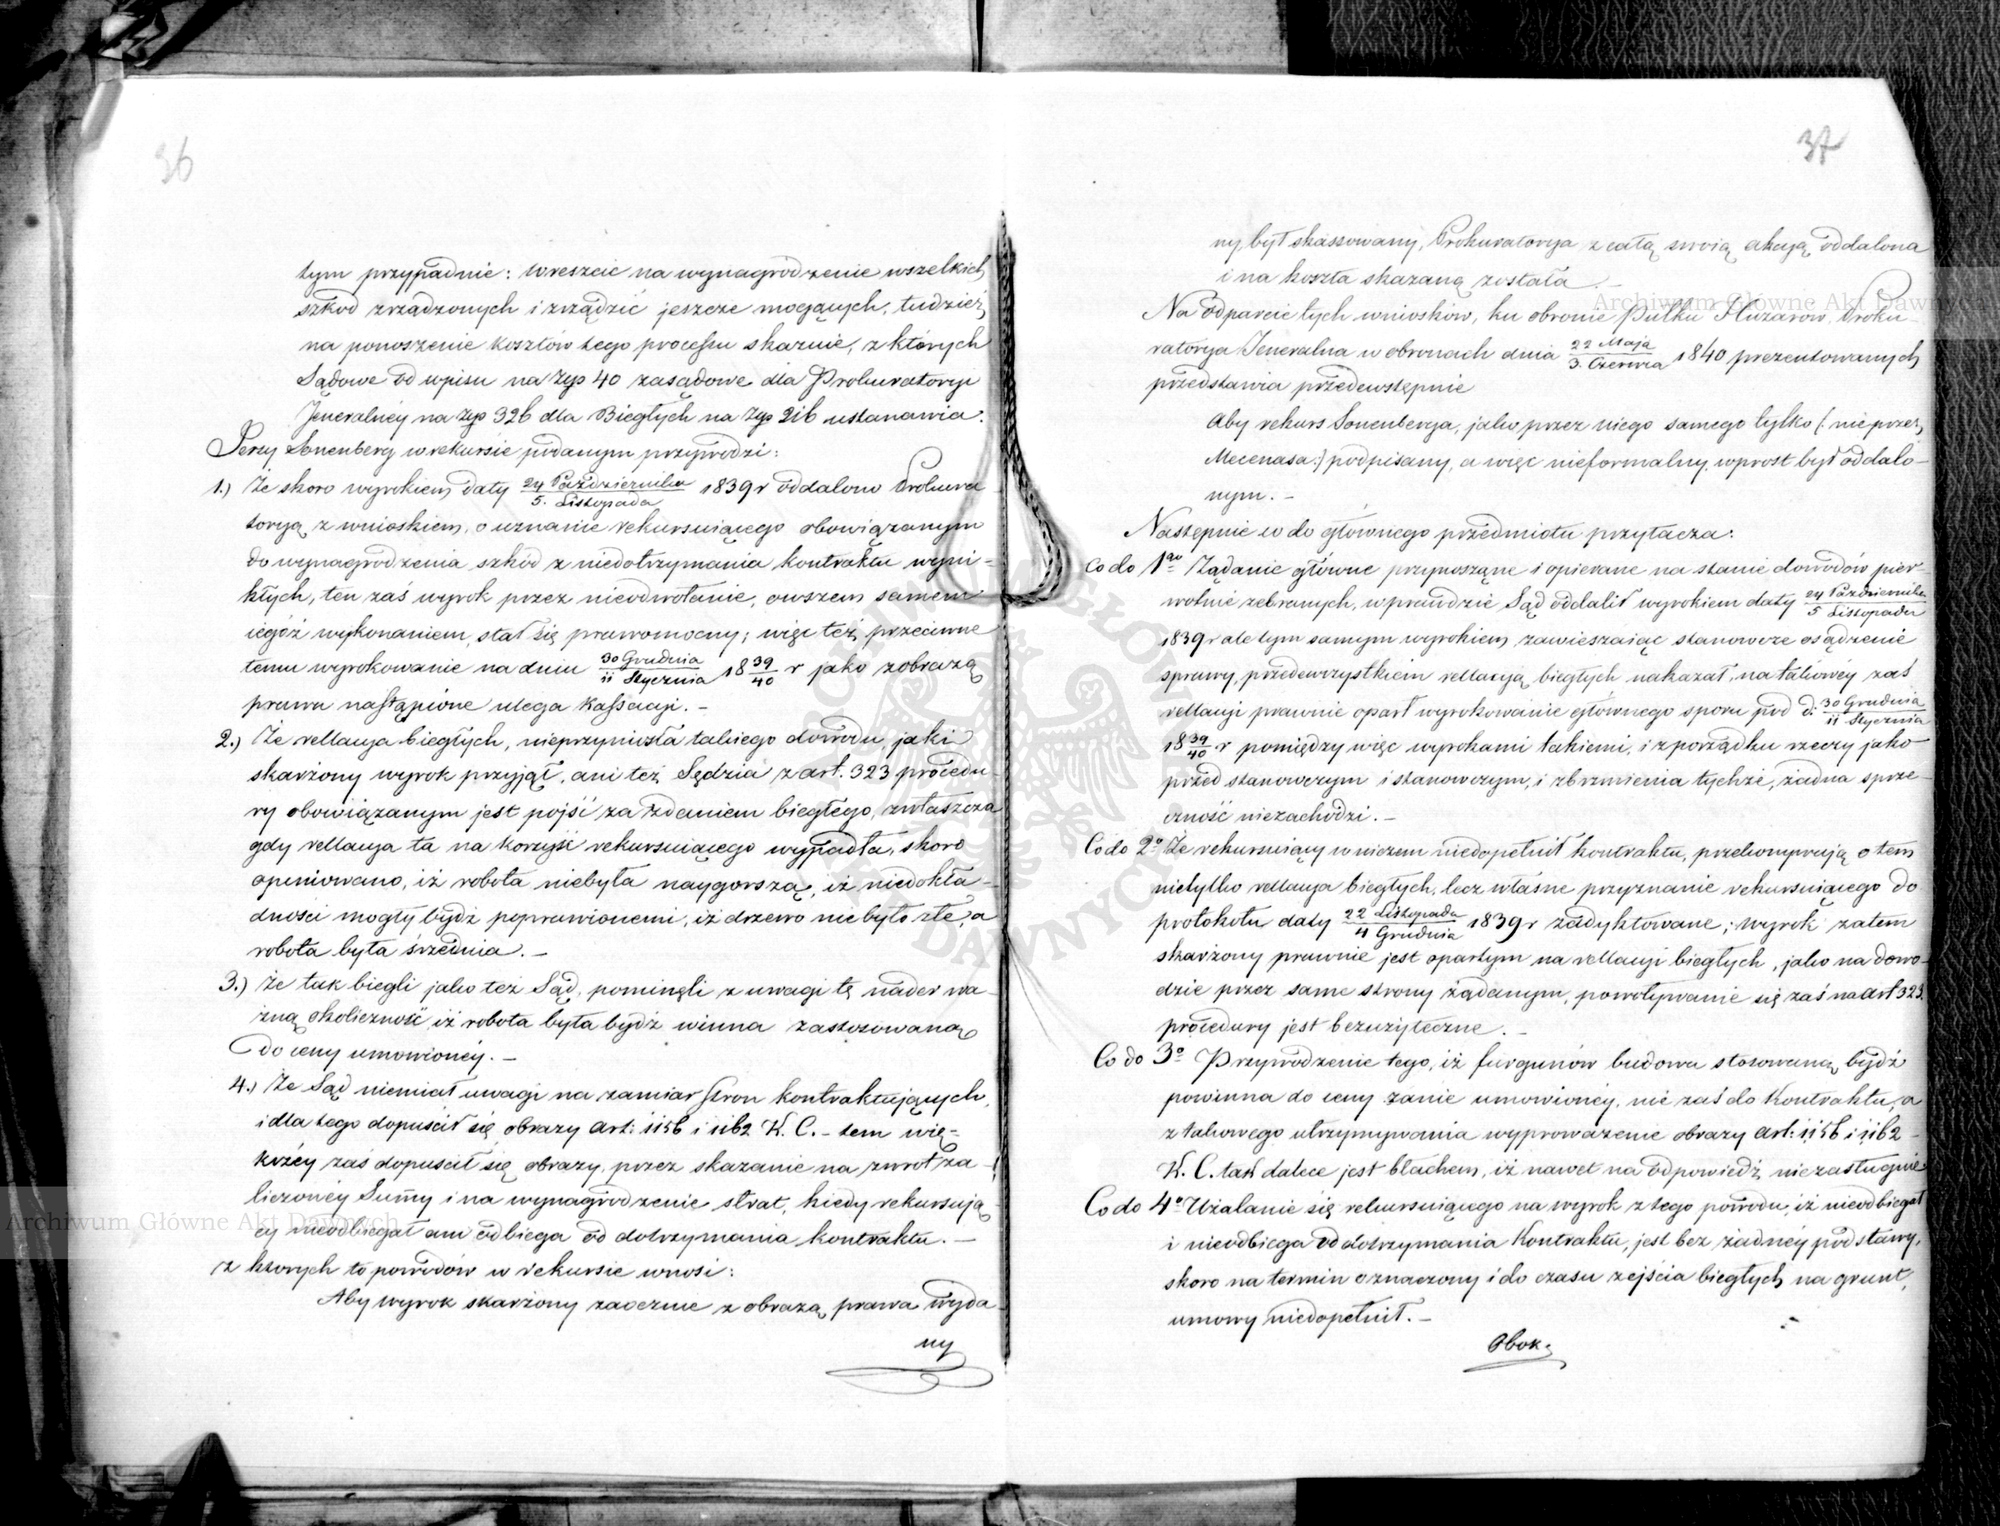 36
tym przypadnie: wreszcie na wynagrodzenie wszelkich
szkód zrządzonych i zrządzić jeszcze mogących, tudzież
na ponoszenie kosztów tego processu skazuie, z których
Sądowe od wpisu na Złp 40 zasądowe dla Prokuratoryi
Jeneralnéy na złp 326 dla Biegłych na złp 216 ustanawia.
Jerzy Sonenberg w rekursie podanym przywodzi:
1.) Że skoro wyrokiem daty 24 Października / 5. Listopada 1839 r oddalono Prokura
toryą z wnioskiem, o uznanie rekursuiącego obowiązanym
do wynagrodzenia szkód z niedotrzymania kontraktu wyni-
kłych, ten zaś wyrok przez nieodwołanie, owszem samem
iegóż wykonaniem, stał się prawomocny; więc też przeciwne
temu wyrokowanie na dniu 30 Grudnia / 11 Stycznia 18 39/40 r jako z obrazą
prawa nastąpione ulega kassacji. –
2.) Że rellacya biegłych, nieprzyniosła takiego dowodu, jaki
skarżony wyrok przyjął, ani też Sędzia z art. 323 procedu-
ry obowiązanym jest pojść za zdaniem biegłego, zwłaszcza
gdy rellacya ta na korzyść rekursuiącego wypadła, skoro
opiniowano, iż robota niebyła naygorszą, iż niedokła-
dności mogły bydź poprawionemi, iż drzewo nie było złe, a
robota była średnia. –
3.) Że tak biegli jako też Sąd, pominęli z uwagi tę nader wa-
żną okoliczność, iż robota była bydź winna zastosowaną
do ceny umowionéy. –
4.) Że Sąd niemiał uwagi na zamiar stron kontraktujących,
i dla tego dopuścił się obrazy art: 1156 i 1162 K. C. – tem wię-
kszéy zaś dopuścił się obrazy, przez skazanie na zwrot za-
liczonéy Summy i na wynagrodzenie strat, kiedy rekursują
cy nieodbiegał ani odbiega od dotrzymania kontraktu. –
z których to powodów w rekursie wnosi:
Aby wyrok skarżony zaocznie z obrazą prawa wyda
ny
37
ny był skassowany, Prokuratorya z całą swoią akcyą oddalona
i na koszta skazaną została. –
Na odparcie tych wniosków, ku obronie Pułku Huzarów Proku-
ratorya Jeneralna w obronach dnia 22 Maja / 3. Czerwca 1840 prezentowanych
przedstawia przedewstępnie
Aby rekurs Sonenberga, jako przez niego samego tylko (: nie przez
Mecenasa :) podpisany, a więc nieformalny, wprost był oddalo-
nym. –
Następnie co do głównego przedmiotu przytacza:
Co do 1go Żądanie główne przynoszące i opierane na stanie dowodów pier-
wotnie zebranych, wprawdzie Sąd oddalił wyrokiem daty 24 Października / 5 Listopada
1839 r ale tym samym wyrokiem, zawieszaiąc stanowcze osądzenie
sprawy, przedewszystkiem rellacyą biegłych nakazał, na takowéy zaś
rellacyi prawnie oparł wyrokowanie głównego sporu pod d: 30 Grudnia / 11 Stycznia
18 39/40 r pomiędzy więc wyrokami takiemi, i z porządku rzeczy jako
przed stanowczym i stanowczym, i zbrzmienia tychże, żadna sprze-
czność niezachodzi. –
Co do 2o Że rekursuiący w niczem niedopełnił kontraktu, przekonywają o tem
nietylko rellacya biegłych, lecz własne przyznanie rekursuiącego do
protokołu daty 22 Listopada / 4 Grudnia 1839 r zadyktowane; wyrok zatem
skarżony prawnie jest opartym na rellacyi biegłych, jako na dowo-
dzie przez same strony żądanym, powoływanie się zaś na art 323.
procedury jest bezużyteczne. –
Co do 3o Przywodzenie tego, iż furgonów budowa stosowaną bydź
powinna do ceny zanie umowionéy, nie zaś do kontraktu, a
z takowego utrzymywania wyprowadzenie obrazy art: 1156 i 1162 –
K. C. tak dalece jest błachem, iż nawet na odpowiedź niezasługuie
Co do 4o Użalanie się rekursuiącego na wyrok z tego powodu, iż nieodbiegał
i nieodbiega od dotrzymania Kontraktu, jest bez żadnéy podstawy,
skoro na termin oznaczony i do czasu zejścia biegłych na grunt,
umowy niedopełnił. –
Obok.
Archiwum Główne Akt Dawnych
Archiwum Główne Akt Dawnych